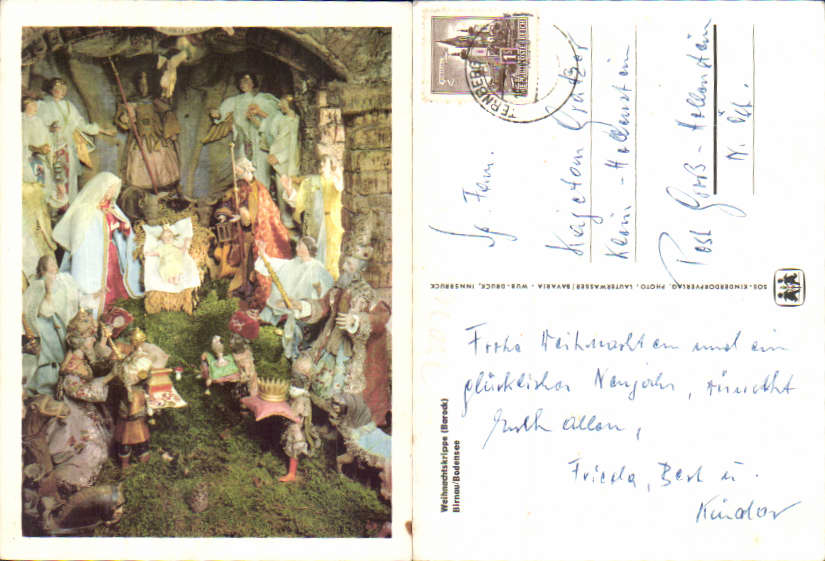 1S
REPUBLIK ÖSTERREICH
ERNBERG
Sg. Fam.
Kajetan
Klein-Hollenstein
Post Groß-Hollenstein
N. Öst.
SOS-KINDERDORFVERLAG, PHOTO, LAUTERWASSER BAVARIA - WUB-DRUCK, INNSBRUCK
Weihnachtskrippe (Barock)
Birnau/Bodensee
Frohe Weihnachten und ein
glückliches Neujahr, wünscht
Euch allen,
Frieda, Bert u.
Kinder